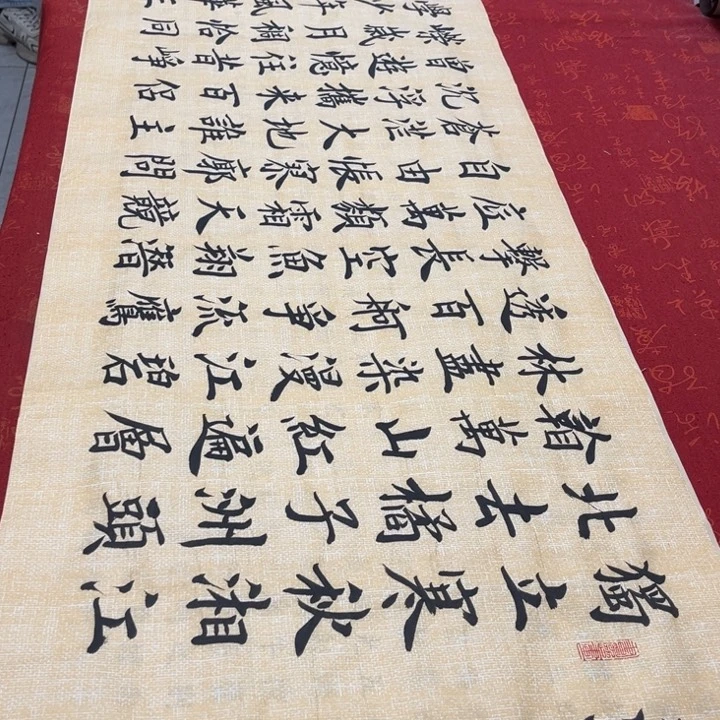 獨立寒秋湘江
北去橘子洲頭
看萬山紅遍層
林盡染漫江碧
透百舸爭流鷹
擊長空魚翔潛
底萬類霜天競
自由悵寥廓問
蒼茫大地誰主
沉浮攜来百侶
曾遊憶往昔崢
嶸歲月稠恰同
學少年風華正